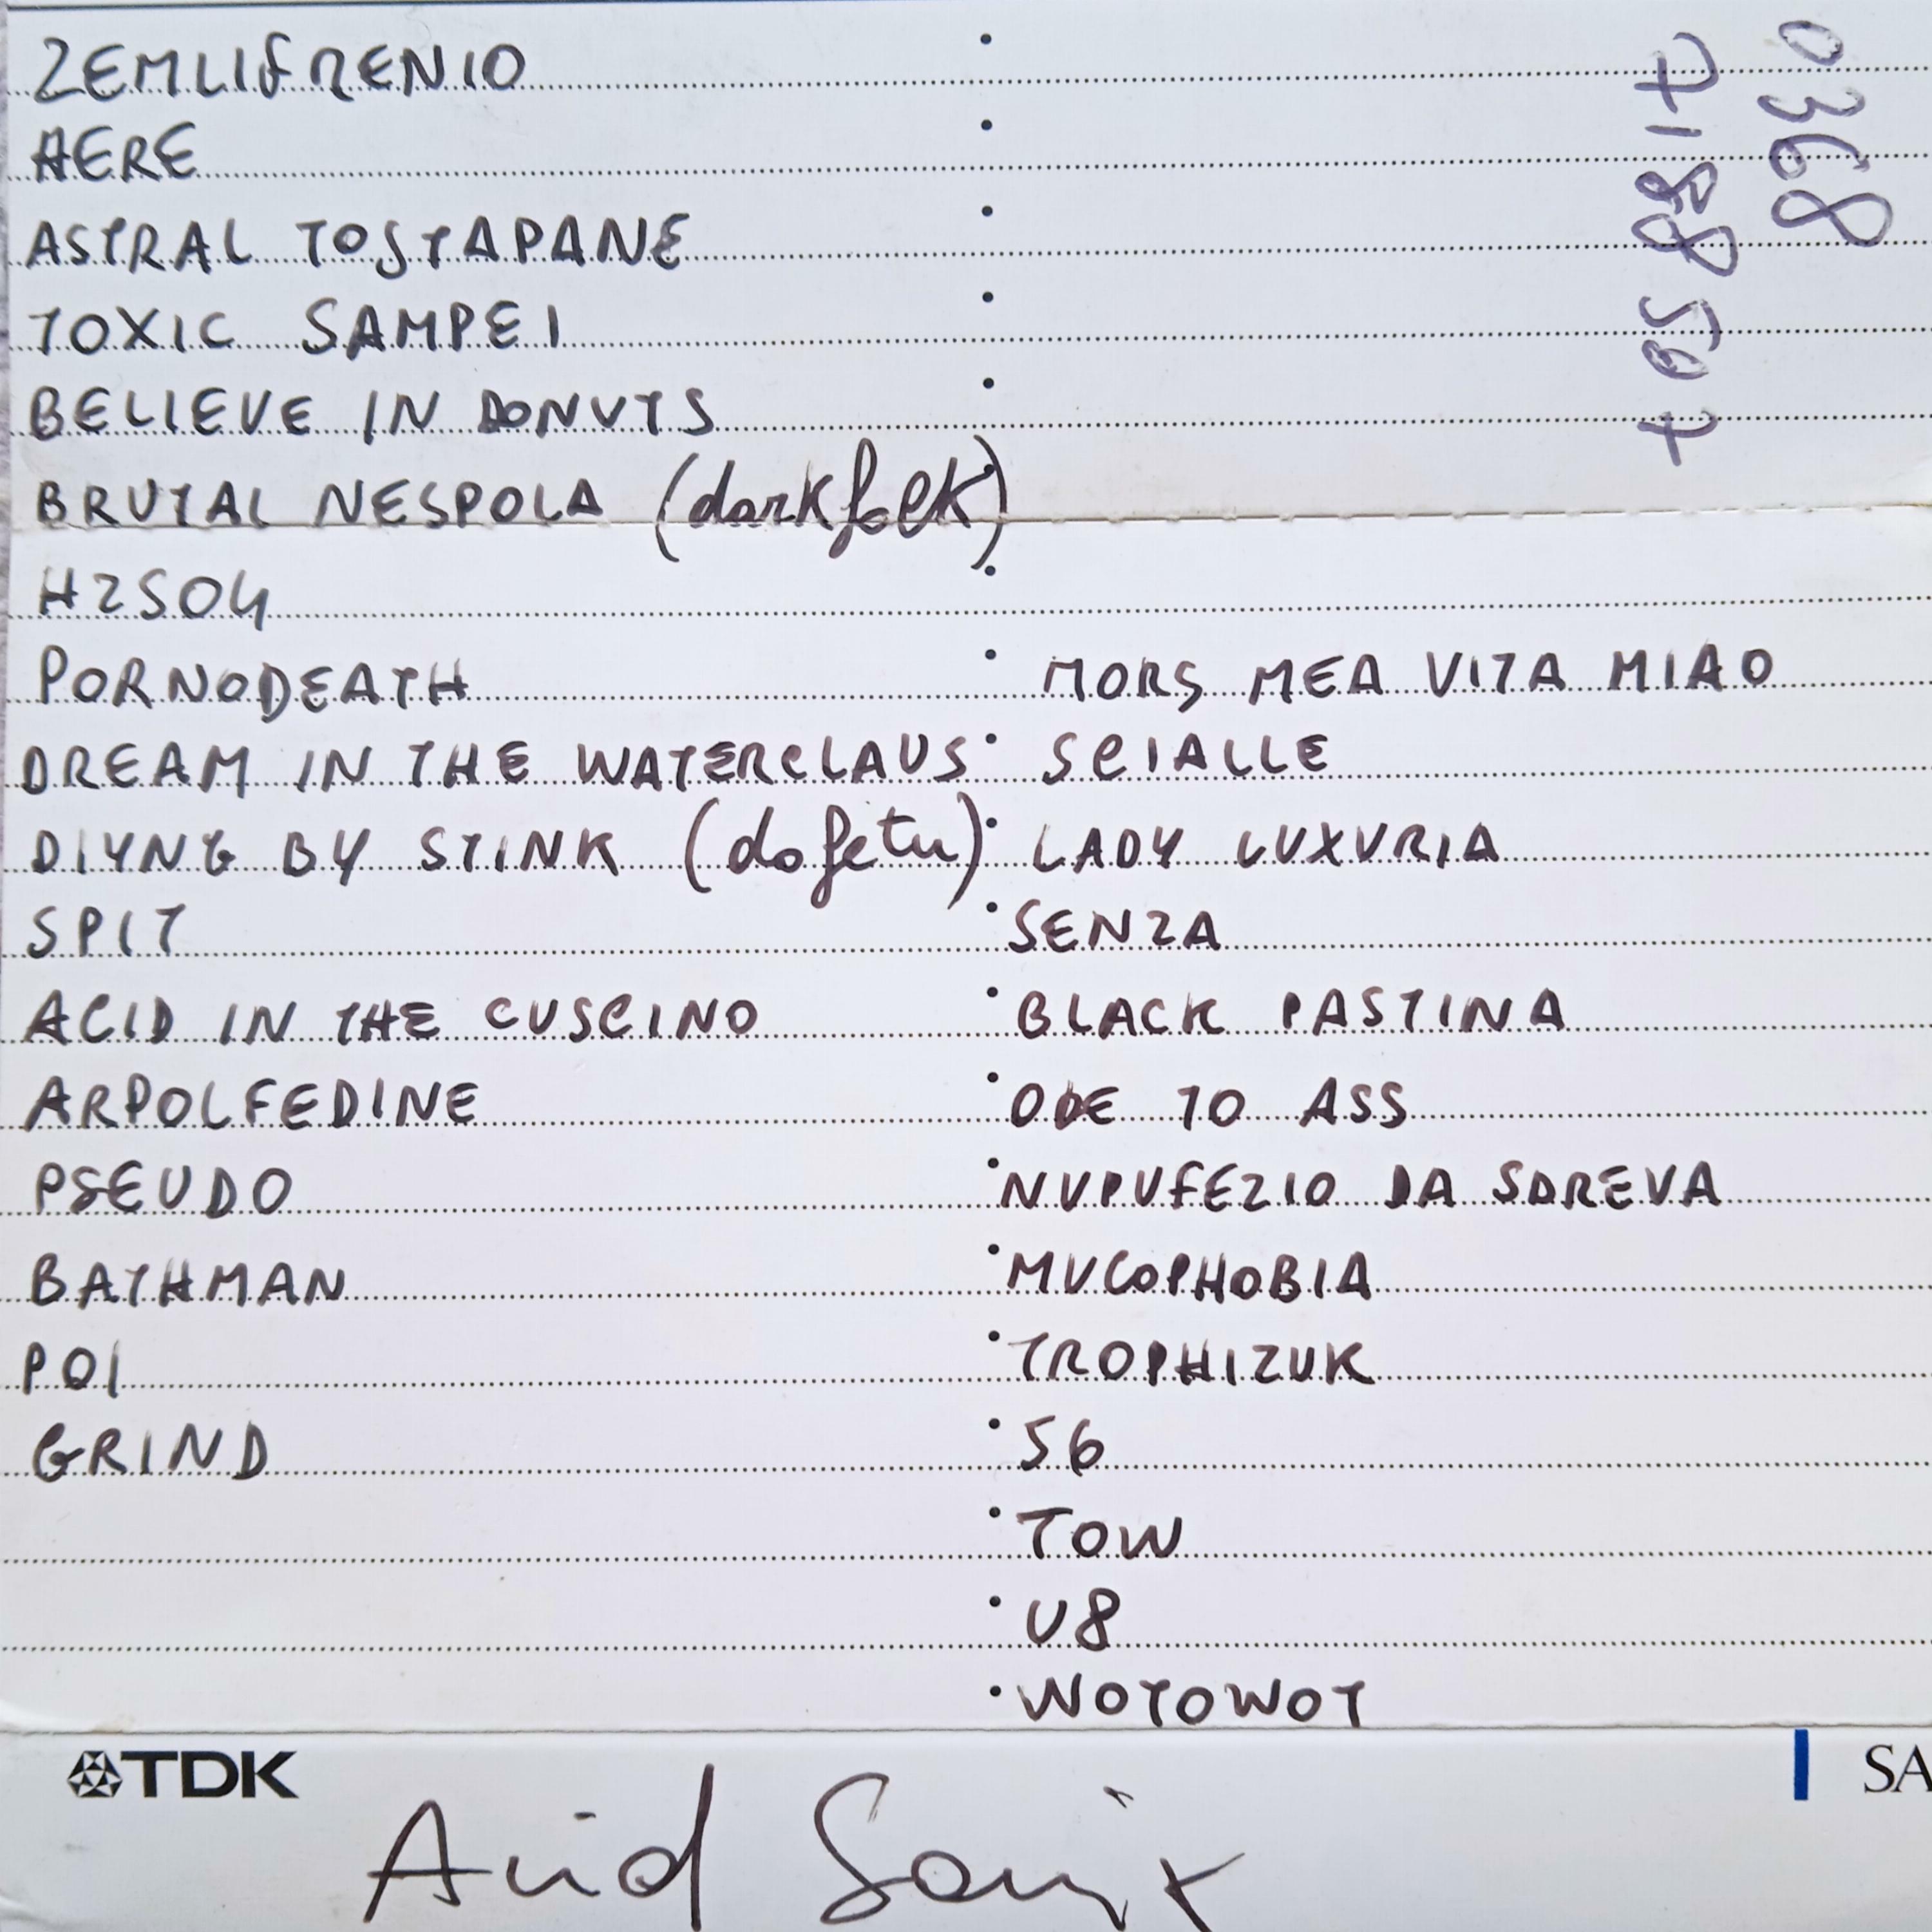 ZEMLIFRENIO
AERE
ASTRAL TOSTAPANE
TOXIC SAMPEI
BELIEVE IN DONUTS
BRUTAL NESPOLA (darkfolk)
H2SO4
PORNODEATH
DREAM IN THE WATERCLAUS
DIYNG BY STINK (do fetu)
SPIT
ACID IN THE CUSCINO
ARPOLFEDINE
PSEUDO
BATHMAN
POI
GRIND
MORS MEA VITA MIAO
SCIALLE
LADY LUXURIA
SENZA
BLACK PASTINA
ODE TO ASS
NUPUFEZIO DA SDREVA
MUCOPHOBIA
TROPHIZUK
56
TOW
U8
WOTOWOT
0368
TDK
SA
Acid